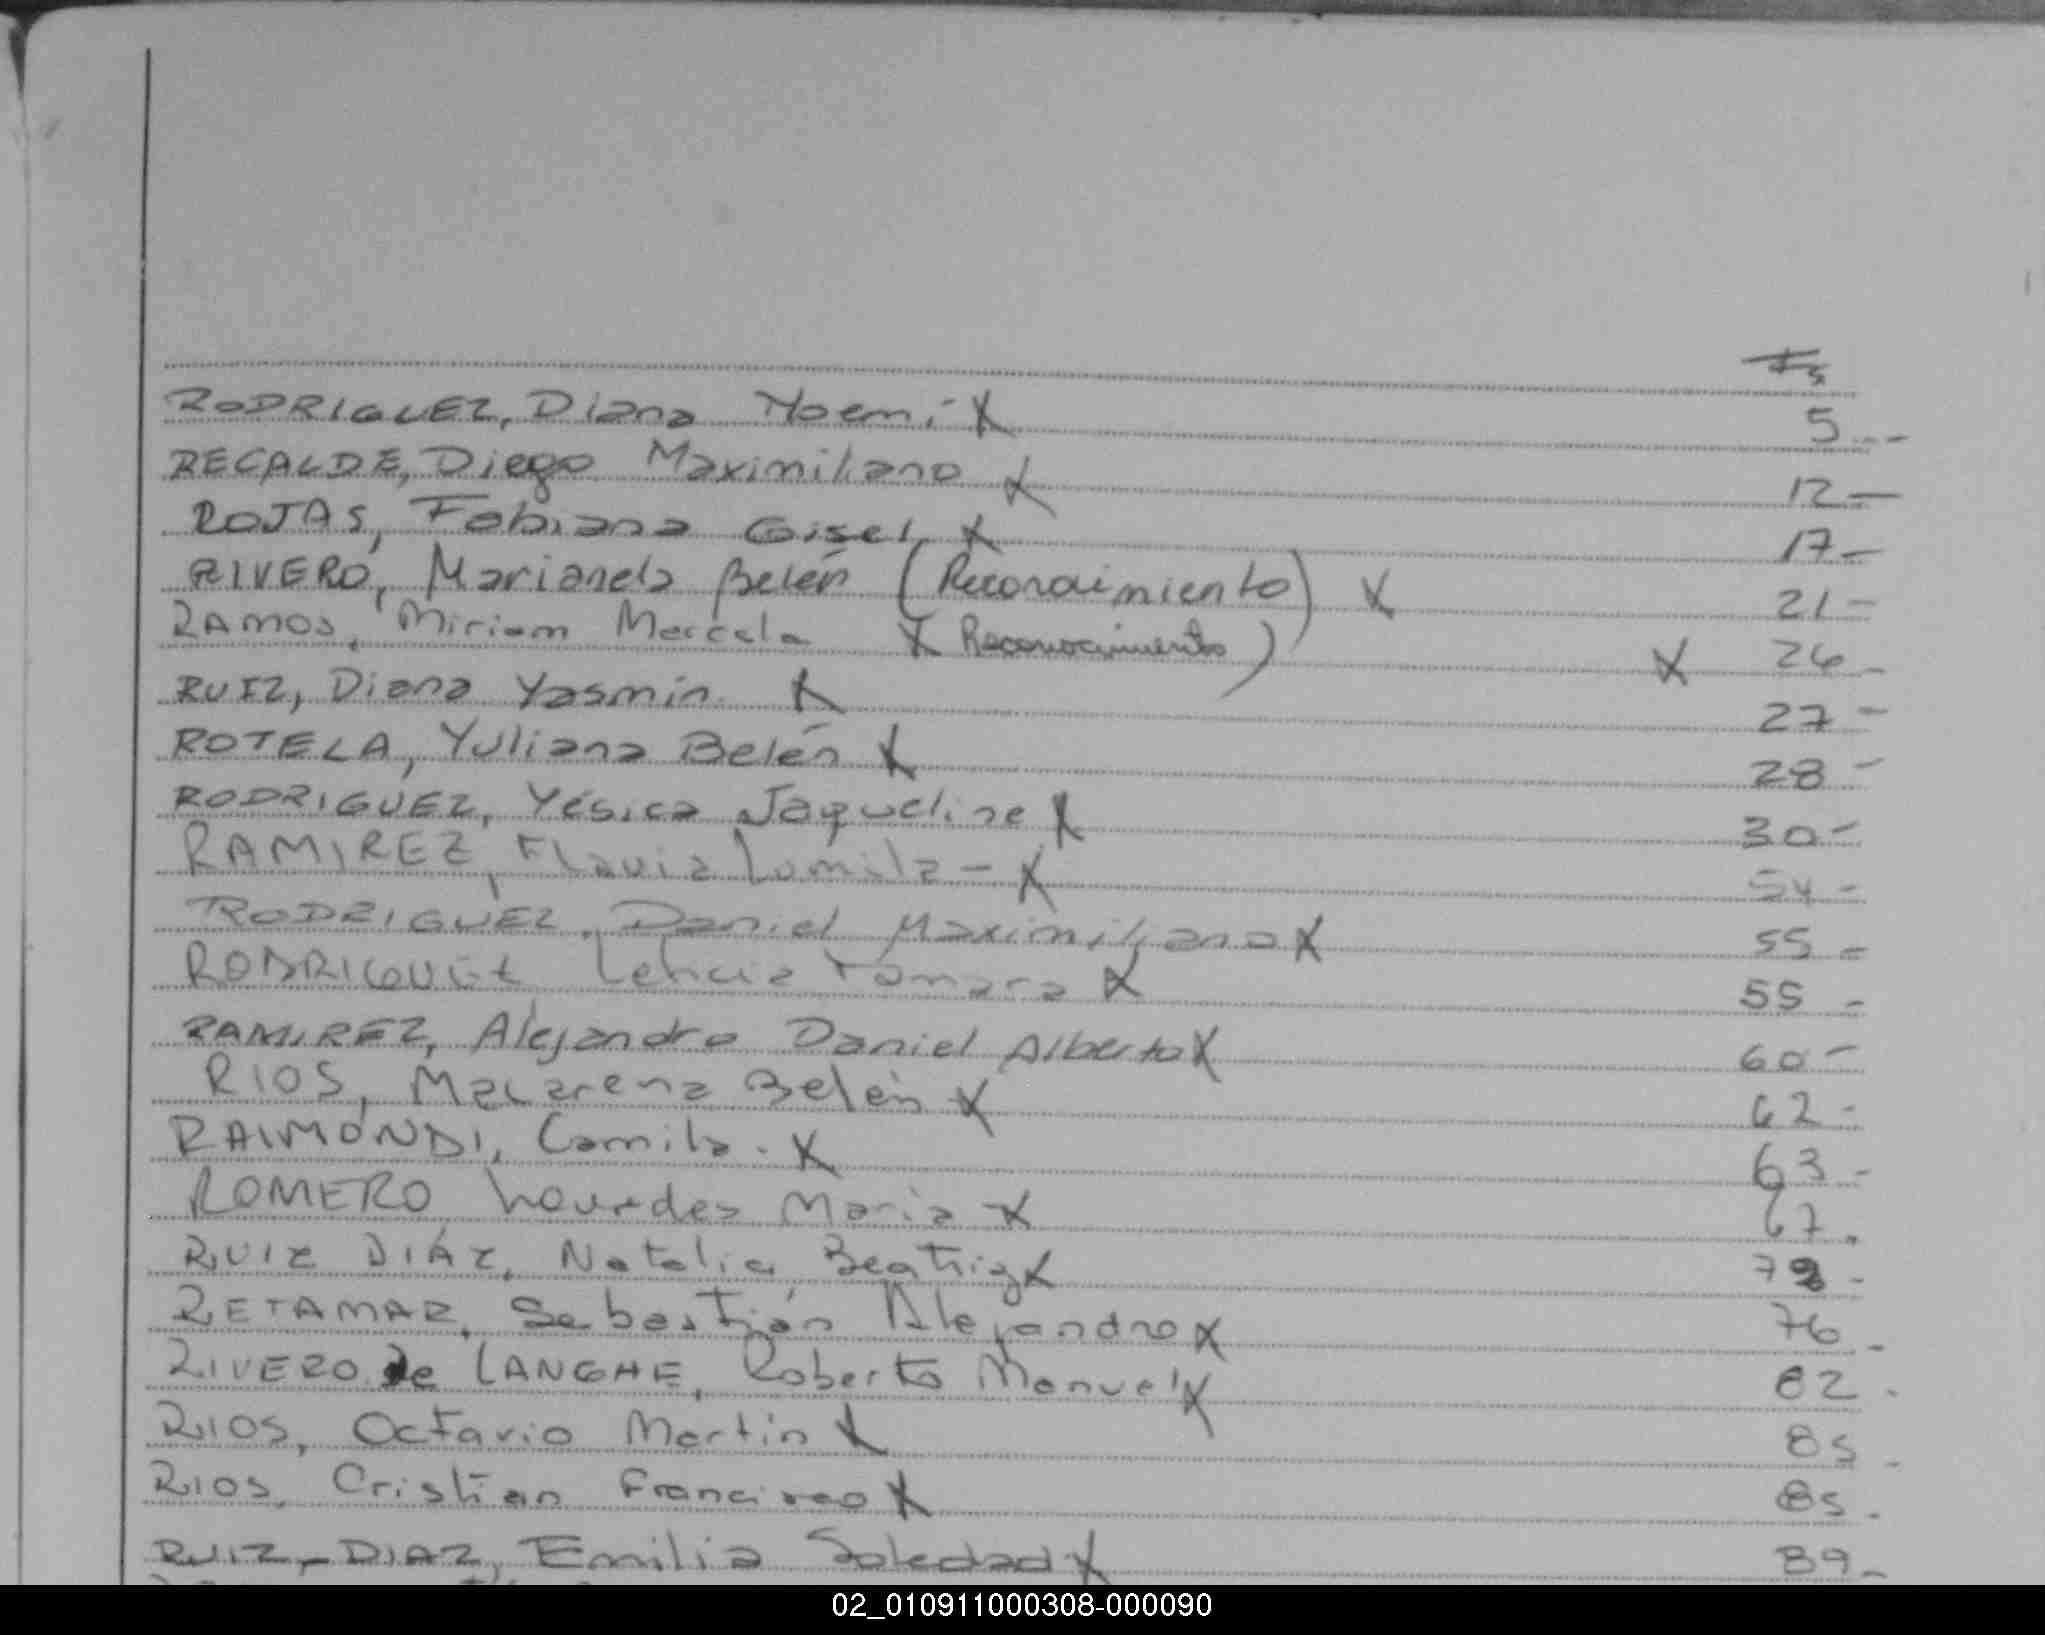 Fs
RODRIGUEZ, Diana Noemí X 5.--
RECALDE, Diego Maximiliano X 12-
ROJAS, Fabiana Gisel X 17-
RIVERO, Marianela Belén (Reconoimiento) X 21-
RAMOS, Miriam Marcela X Reconocimiento) X 26-
RUIZ, Diana Yasmín. X 27-
ROTELA, Yuliana Belén X 28-
RODRIGUEZ, Yésica Jaqueline X 30-
RAMIREZ, Flavia Lumila - X 54-
RODRIGUEZ, Daniel Maximiliano X 55-
RODRIGUEZ Leticia Tamara X 55-
RAMIREZ, Alejandro Daniel Alberto X 60-
RIOS, Macarena Belén X 62-
RAIMONDI, Camila. X 63-
ROMERO, Lourdes Maria X 67.
RUIZ DIÁZ, Natalia Beatriz X 72-
RETAMAR, Sebastián Alejandro X 76-
RIVERO de LANGHE, Roberto Manuel X 82.
RIOS, Octavio Martín X 85-
RIOS, Cristian Francisco X 85-
RUIZ-DIAZ, Emilia Soledad X 89-
02_010911000308-000090